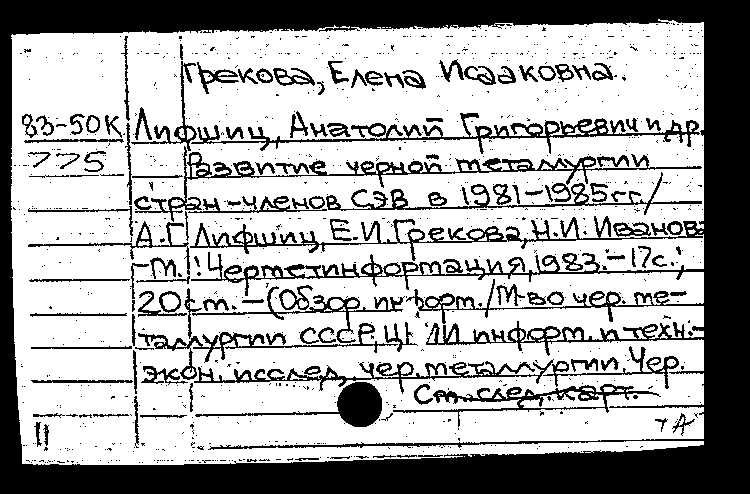 Грекова, Елена Исааковна.
83-50К Лифшиц, Анатолий Григорьевич и др.
775 Развитие черной металлургии
стран-членов СЭВ в 1981-1985гг./
А.Г. Лифшиц, Е.И.Грекова, Н.И. Иванова
-М.: Черметинформация, 1983.-17с.;
20см.-(Обзор. информ./М-во чер. ме-
таллургии СССР, ЦНИИ информ. и техн.-
экон. исслед. чер. металлургии. Чер.
См. след. карт.
11